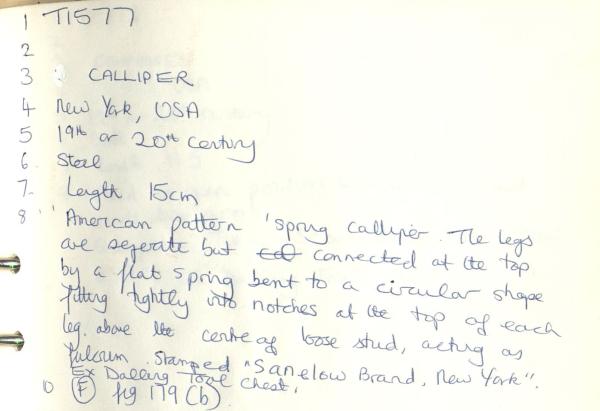 1 T1577
2
3 CALLIPER
4 New York, USA
5 19th or 20th century
6. Steel
7- Length 15cm
8 '' American pattern 'spring calliper. The legs
are seperate but connected at the top
by a flat spring bent to a circular shape
fitting tightly into notches at the top of each
leg. above the centre of loose stud, acting as
fulcrum. Stamped "Sanelow Brand, New York".
Ex Dalling Tool Chest.
10 (F) fig 179 (b).